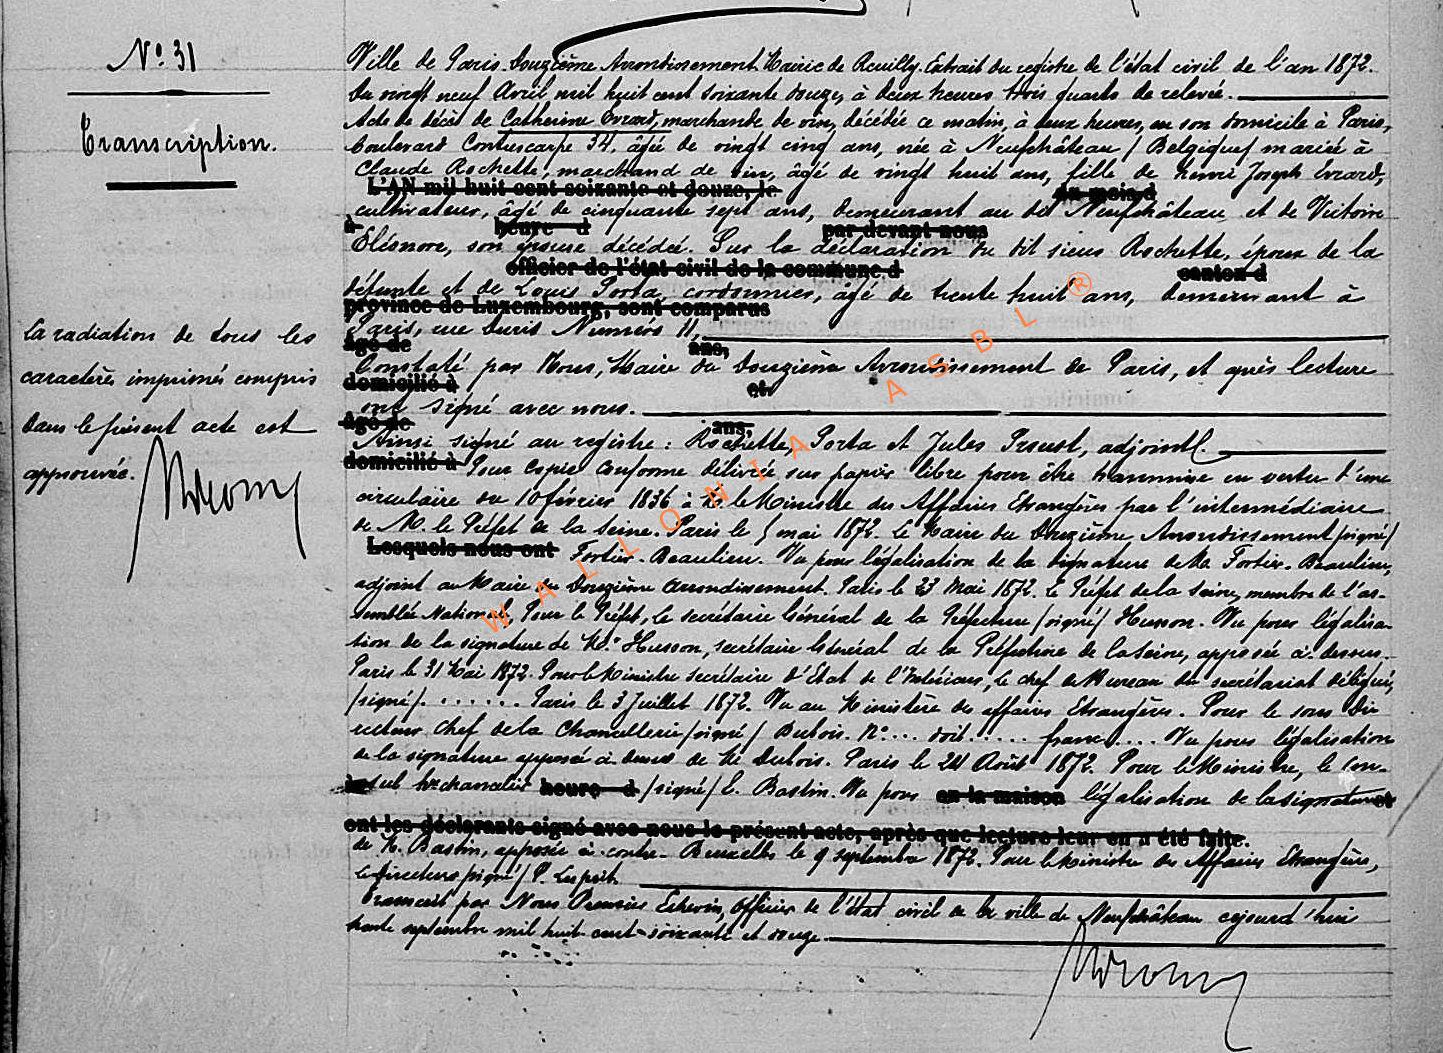 N° 31
Transcription.
La radiation de tous les
caractères imprimés compris
dans le présent acte est
approuvée.
Ville de Paris. Douzième Arrondissement. Mairie de Reuilly. Extrait du registre de l'état civil de l'an 1872.
Du vingt neuf Avril mil huit cent soixante douze, à deux heures trois quarts de relevée.
Acte de décès de Catherine Evrard, marchande de vin, décédée ce matin, à deux heures, en son domicile à Paris,
boulevard Contrescarpe 34, âgée de vingt cinq ans, née à Neufchâteau / Belgique / mariée à
Claude Rochette, marchand de vin, âgé de vingt huit ans, fille de Henri Joseph Evrard,
L'AN mil huit cent soixante et douze, le du mois d
cultivateur, âgé de cinquante sept ans, demeurant au dit Neufchâteau et de Victoire
à heure d par devant nous
Eléonore, son épouse décédée. Sur la déclaration du dit sieur Rochette, époux de la
officier de l'état civil de la commune d canton d
défunte et de Louis Porta, cordonnier, âgé de trente huit ans, demeurant à
province de Luxembourg, sont comparus
Paris, rue Numéro 11,
âgé de ans,
Constaté par Nous, Maire du douzième Arrondissement de Paris, et après lecture
domicilié à et
ont signé avec nous.
âgé de ans,
Ainsi signé au registre : Rochette, Porta et Jules Proust, adjoint.
domicilié à Pour copie conforme délivrée sur papier libre pour être transmise en vertu d'une
circulaire du 10 février 1836 à M. le Ministre des Affaires Etrangères par l'intermédiaire
de M. le Préfet de la Seine. Paris le mai 1872. Le Maire du Douzième Arrondissement /signé/
Lesquels nous ont Fortier-Beaulieu. Vu pour légalisation de la signature de M. Fortier-Beaulieu,
adjoint au Maire du Douzième arrondissement. Paris le 23 Mai 1872. Le Préfet de la Seine, membre de l'as-
semblée Nationale. Pour le Préfet, le secrétaire Général de la Préfecture /signé/ Husson. Vu pour légalisa-
tion de la signature de Mr Husson, secrétaire Général de la Préfecture de la Seine, apposée ci-dessus.
Paris le 31 Mai 1872. Pour le Ministre secrétaire d'Etat de l'Intérieur, le chef de Bureau du secrétariat délégué,
/signé/. . . . . . . Paris le 3 Juillet 1872. Vu au Ministère des affaires Etrangères. Pour le sous Di-
recteur Chef de la Chancellerie /signé/ Dubois. N° ... doit ..... franc ..... Vu pour légalisation
de la signature apposée ci-dessus de M. Dubois. Paris le 24 Août 1872. Pour le Ministre, le Con-
sul heure d /signé/ E. Bastin. Vu pour en la maison légalisation de la signature
ont les déclarants signé avec nous le présent acte, après que lecture leur en a été faite.
de M. Bastin, apposée ci-contre. Bruxelles le 9 septembre 1872. Pour le Ministre des Affaires Etrangères,
le directeur /signé/ P.
Transcrit par Nous Premier Echevin, Officier de l'état civil de la ville de Neufchâteau cejourd'hui
trente septembre mil huit cent soixante et douze.
WALLONIA ASBL ®